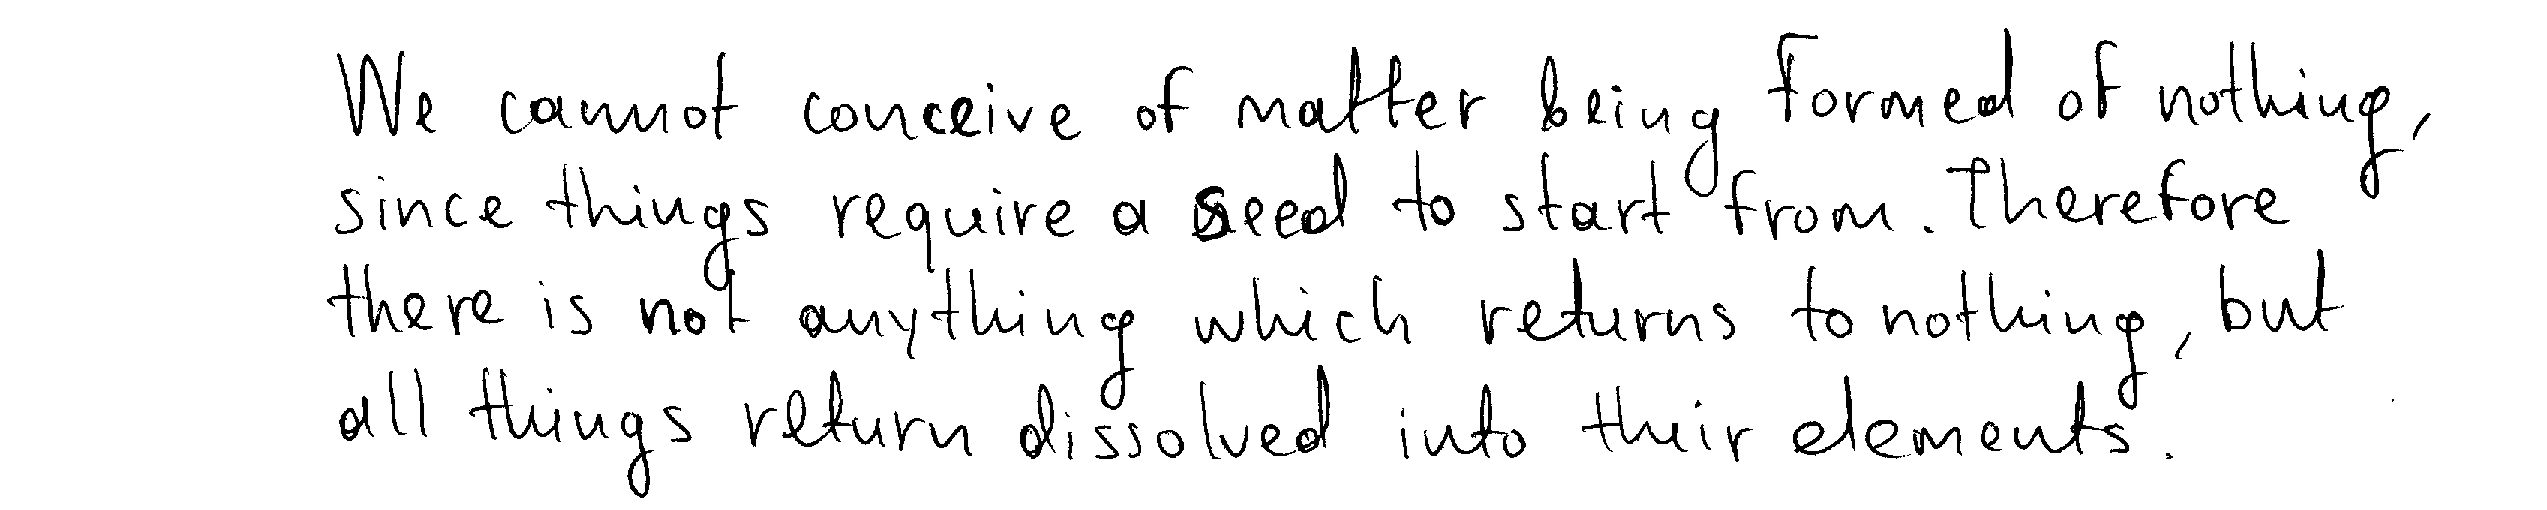 We cannot conceive of matter being formed of nothing,
since things require a seed to start from. Therefore
there is not anything which returns to nothing, but
all things return dissolved into their elements.